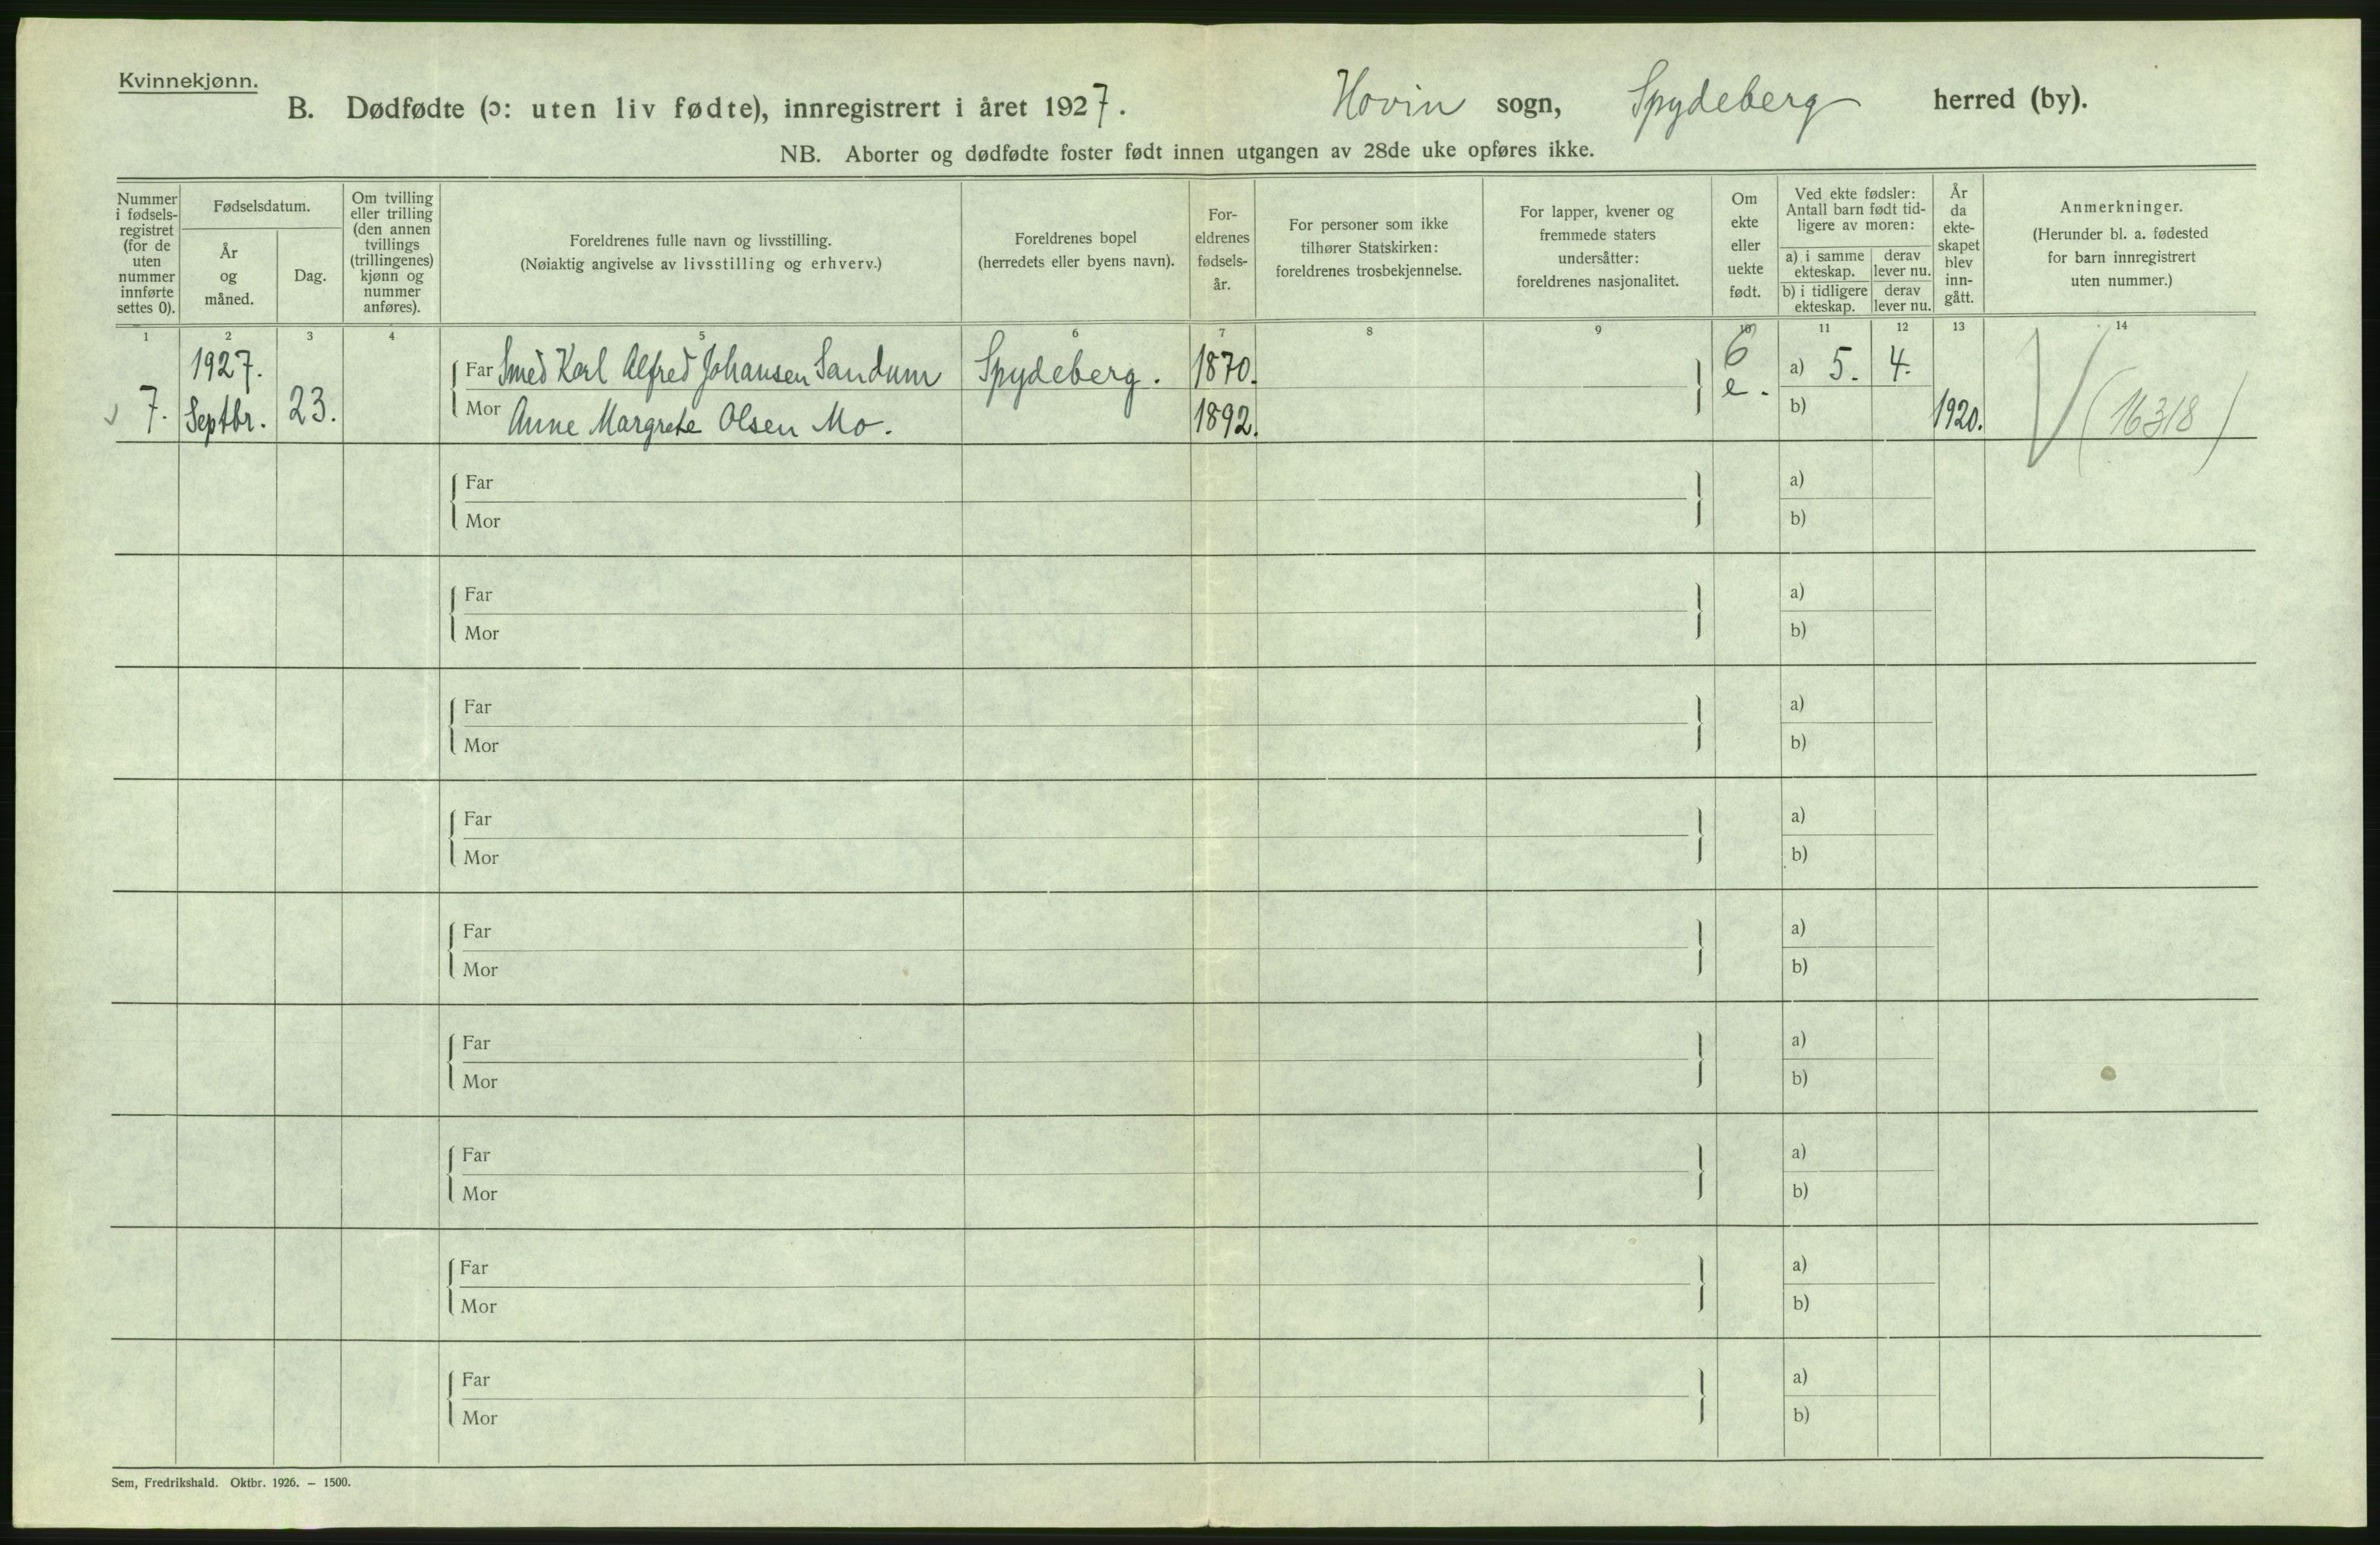 Kvinnekjønn.
B. Dødfødte (ɔ: uten liv fødte), innregistrert i året 1927. Hovin sogn, Spydeberg herred (by).
NB. Aborter og dødfødte foster født innen utgangen av 28de uke opføres ikke.
Nummer
i fødsels-
registret
(for de
uten
nummer
innførte
settes 0).
Fødselsdatum.
År
og
måned.
Dag.
Om tvilling
eller trilling
(den annen
tvillings
(trillingenes)
kjønn og
nummer
anføres).
Foreldrenes fulle navn og livsstilling.
(Nøiaktig angivelse av livsstilling og erhverv.)
Foreldrenes bopel
(herredets eller byens navn).
For-
eldrenes
fødsels-
år.
For personer som ikke
tilhører Statskirken:
foreldrenes trosbekjennelse.
For lapper, kvener og
fremmede staters
undersåtter:
foreldrenes nasjonalitet.
Om
ekte
eller
uekte
født.
Ved ekte fødsler:
Antall barn født tid-
ligere av moren:
a) i samme
ekteskap.
derav
lever nu.
b) i tidligere
ekteskap.
derav
lever nu.
År
da
ekte-
skapet
blev
inn-
gått.
Anmerkninger.
(Herunder bl. a. fødested
for barn innregistrert
uten nummer.)
1 2 3 4 5 6 7 8 9 10 11 12 13 14
7. 1927. Septbr. 23.
Far Smed Karl Alfred Johansen Sandum Spydeberg. 1870. 6 a) 5. 4.
Mor Anne Margrete Olsen Mo. 1892. e. b) 1920. (16318)
Far a)
Mor b)
Far a)
Mor b)
Far a)
Mor b)
Far a)
Mor b)
Far a)
Mor b)
Far a)
Mor b)
Far a)
Mor b)
Far a)
Mor b)
Far a)
Mor b)
Sem, Fredrikshald. Oktbr. 1926. — 1500.